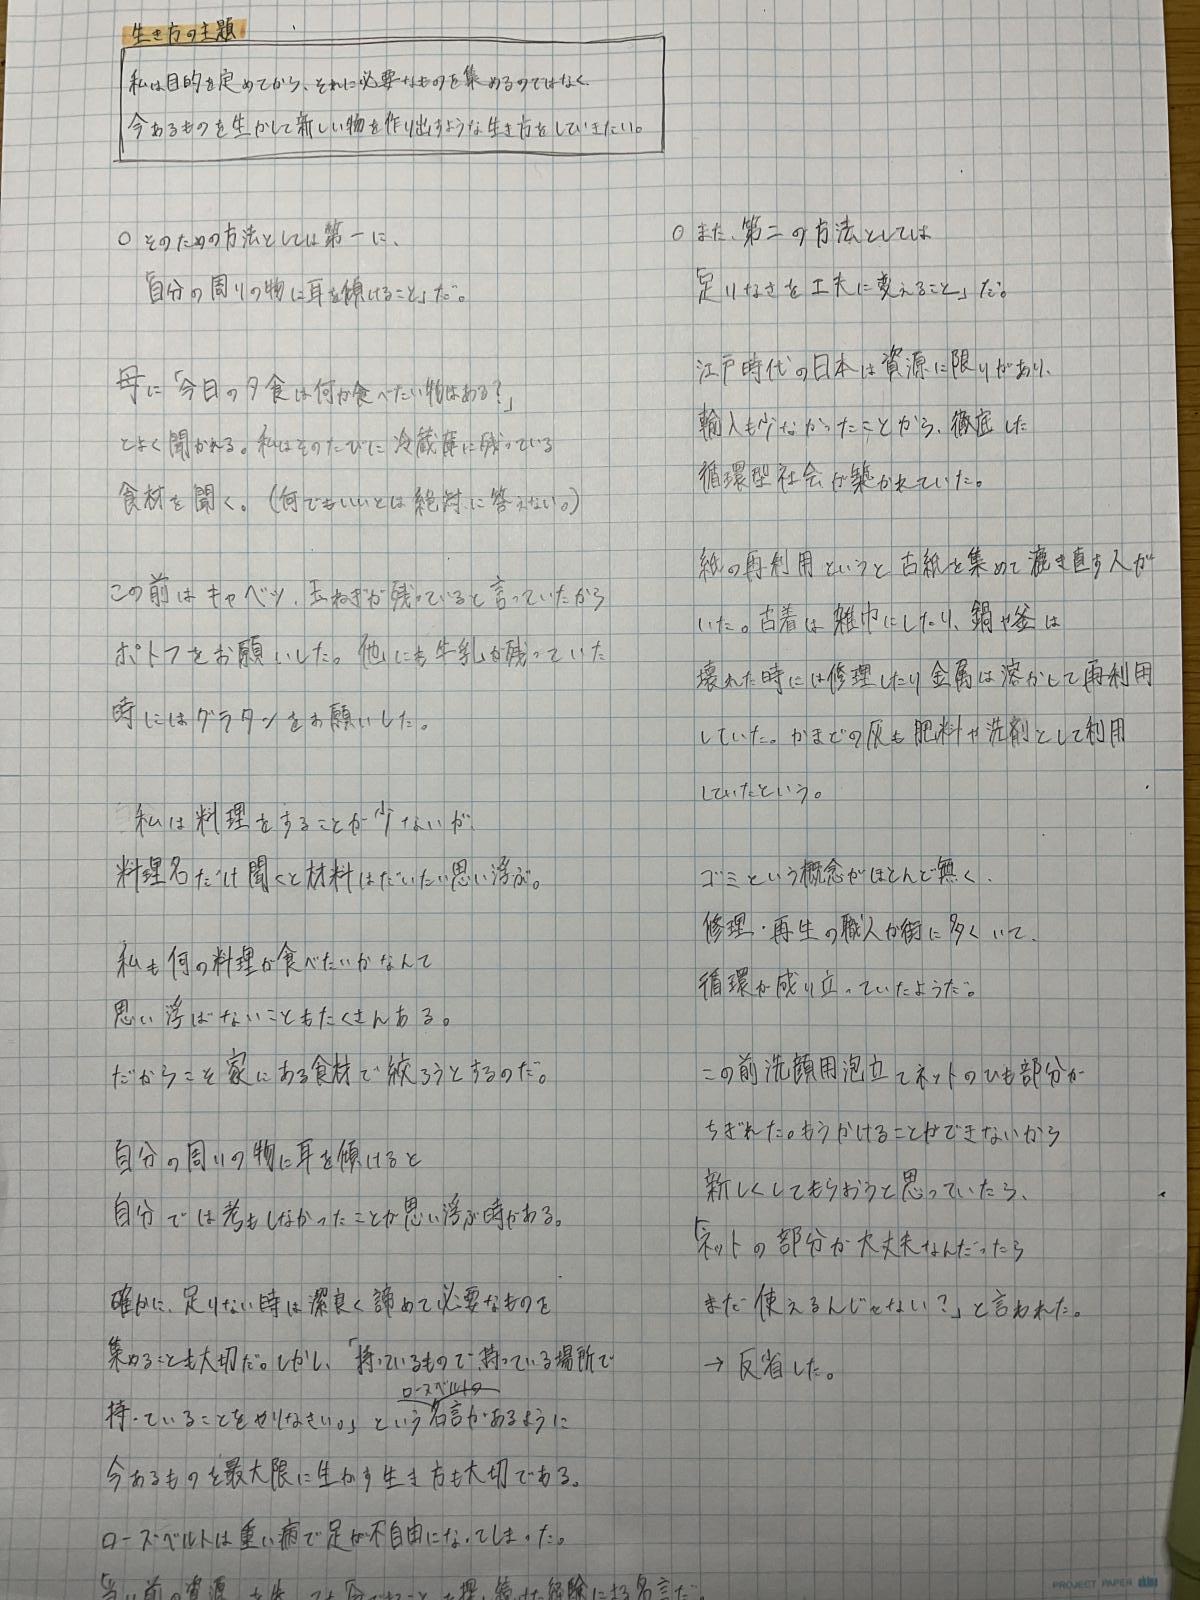 生き方の主題
私は目的を定めてから、それに必要なものを集めるのではなく
今あるものを生かして新しい物を作り出すような生き方をしていきたい。
○ そのための方法としては第一に、
「自分の周りの物に耳を傾けること」だ。
母に「今日の夕食は何か食べたい物はある?」
とよく聞かれる。私はそのたびに冷蔵庫に残っている
食材を聞く。(何でもいいとは絶対に答えない。)
この前はキャベツ、玉ねぎが残っていると言っていたから
ポトフをお願いした。他にも牛乳が残っていた
時にはグラタンをお願いした。
私は料理をすることが少ないが、
料理名だけ聞くと材料はだいたい思い浮ぶ。
私も何の料理が食べたいかなんて
思い浮ばないこともたくさんある。
だからこそ家にある食材で絞ろうとするのだ。
自分の周りの物に耳を傾けると
自分では考もしなかったことが思い浮ぶ時がある。
確かに、足りない時は潔良く諦めて必要なものを
集めることも大切だ。しかし、「持っているもので、持っている場所で
ローズベルトの
持っていることをやりなさい。」という名言があるように
今あるものを最大限に生かす生き方も大切である。
ローズベルトは重い病で足が不自由になってしまった。
○ また、第二の方法としては
「足りなさを工夫に変えること」だ。
江戸時代の日本は資源に限りがあり、
輸入も少なかったことから、徹底した
循環型社会が築かれていた。
紙の再利用というと古紙を集めて漉き直す人が
いた。古着は雑巾にしたり、鍋や釜は
壊れた時には修理したり金属は溶かして再利用
していた。かまどの灰も肥料や洗剤として利用
していたという。
ゴミという概念がほとんど無く、
修理・再生の職人が街に多くいて、
循環が成り立っていたようだ。
この前洗顔用泡立てネットのひも部分が
ちぎれた。もうかけることができないから
新しくしてもらおうと思っていたら、
「ネットの部分が大丈夫なんだったら
まだ使えるんじゃない?」と言われた。
→ 反省した。
PROJECT PAPER